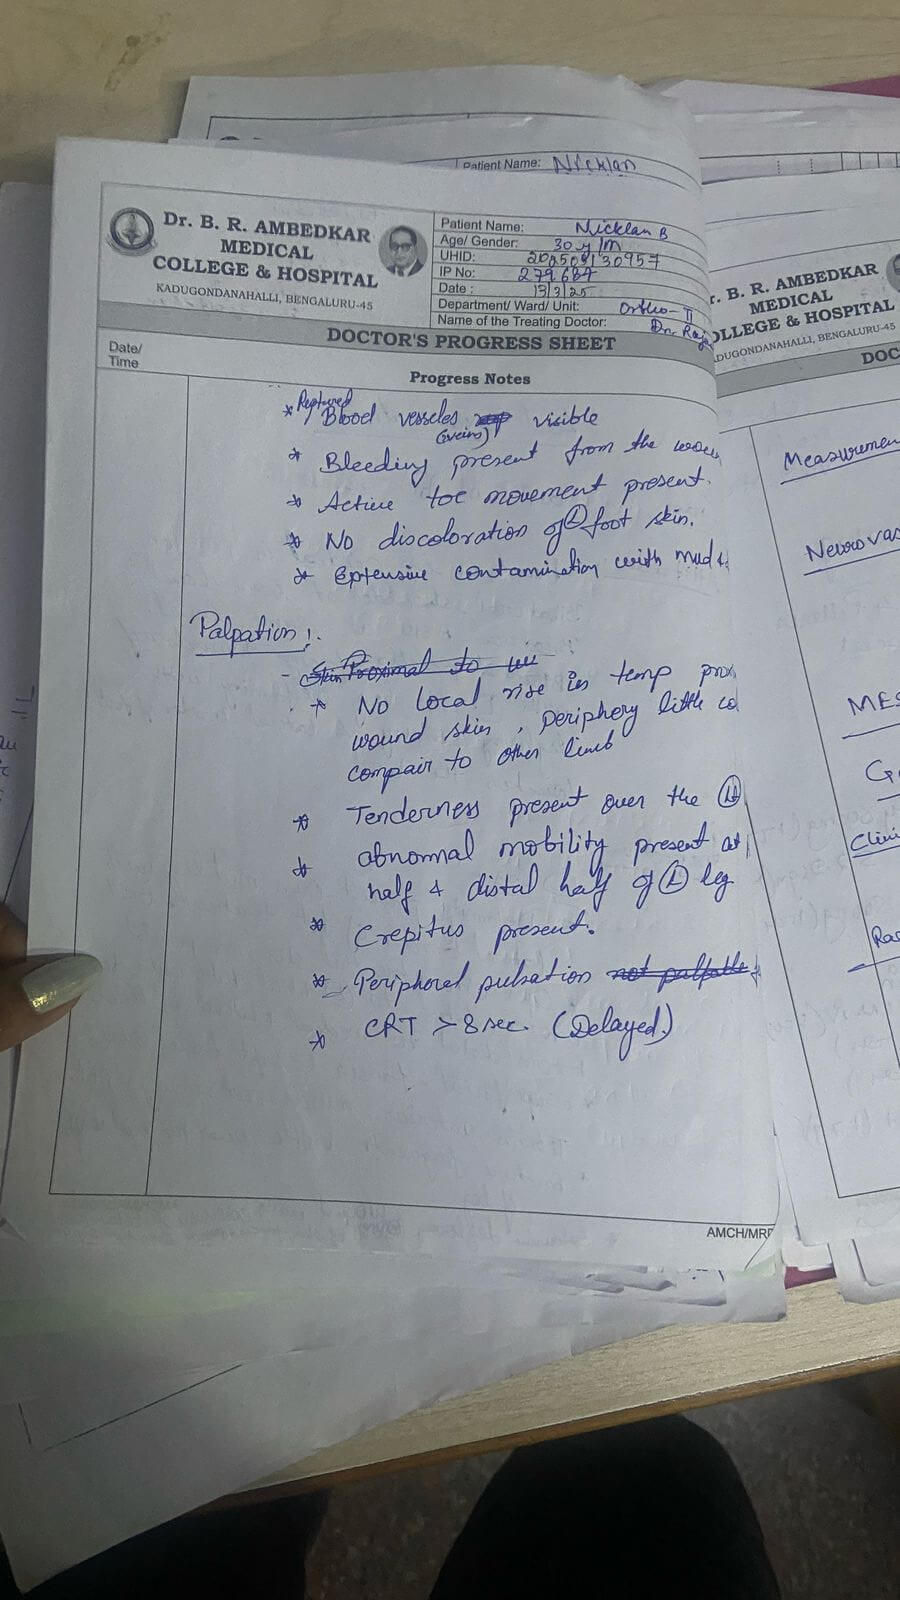 Patient Name: Nicklan
Dr. B. R. AMBEDKAR
MEDICAL
COLLEGE & HOSPITAL
KADUGONDANAHALLI, BENGALURU-45
Patient Name: Nicklan B
Age/ Gender: 30 y/M
UHID:
IP No:
Date : 13/3/25
Department/ Ward/ Unit: Ortho-II
Name of the Treating Doctor: Dr. Raja
DOCTOR'S PROGRESS SHEET
Date/
Time
Progress Notes
* Reptured Blood vessceles visible
(veins)
* Bleeding present from the woun
* Active toe movement present.
* No discoloration of (L) foot skin.
* Extensive contamination with mud
Palpation :
- Skin Proximal to
* No local rise in temp prox
wound skin, periphery little co
compair to other limb
* Tenderness present over the
* abnormal mobility present at
half & distal half of (L) leg
* Crepitus present.
* Peripheral pulsation not palpable
* CRT > 8 sec. (Delayed)
AMCH/MRD
r. B. R. AMBEDKAR
MEDICAL
OLLEGE & HOSPITAL
DUGONDANAHALLI, BENGALURU-45
DOC
Measuremen
Neurovas
MES
G
Clini
Ra